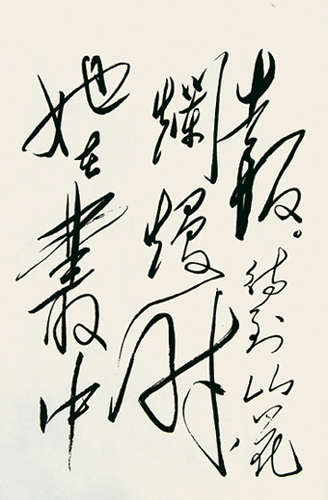 報。待到山花
爛熳時
她在叢中